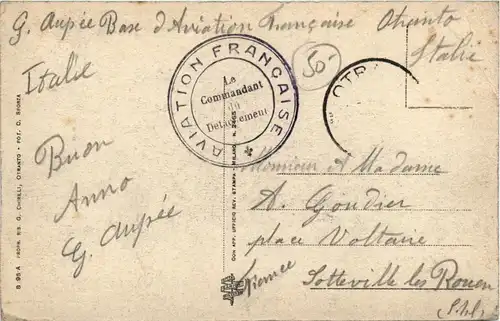 G. Aupée Base d'Aviation Française Otranto
Italie
Italie
AVIATION FRANÇAISE
Le
Commandant
du
Détachement
50
OTR
Buon
Anno
G. Aupée
Monsieur et Madame
A. Goudier
place Voltaire
Sotteville les Rouen
France
(S. Inf.)
B 95 A PROPR. RIS. G. CHIRILLI, OTRANTO - FOT. D. SFORZA
CON APP. UFFICIO REV. STAMPA - MILANO N. 2465